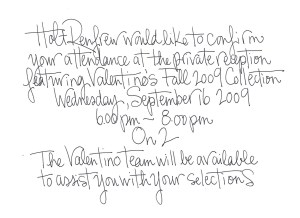 Holt Renfrew would like to confirm
your attendance at the private reception
featuring Valentino's Fall 2009 Collection
Wednesday, September 16 2009
6:00pm - 8:00pm
On 2
The Valentino Team will be available
to assist you with your selections